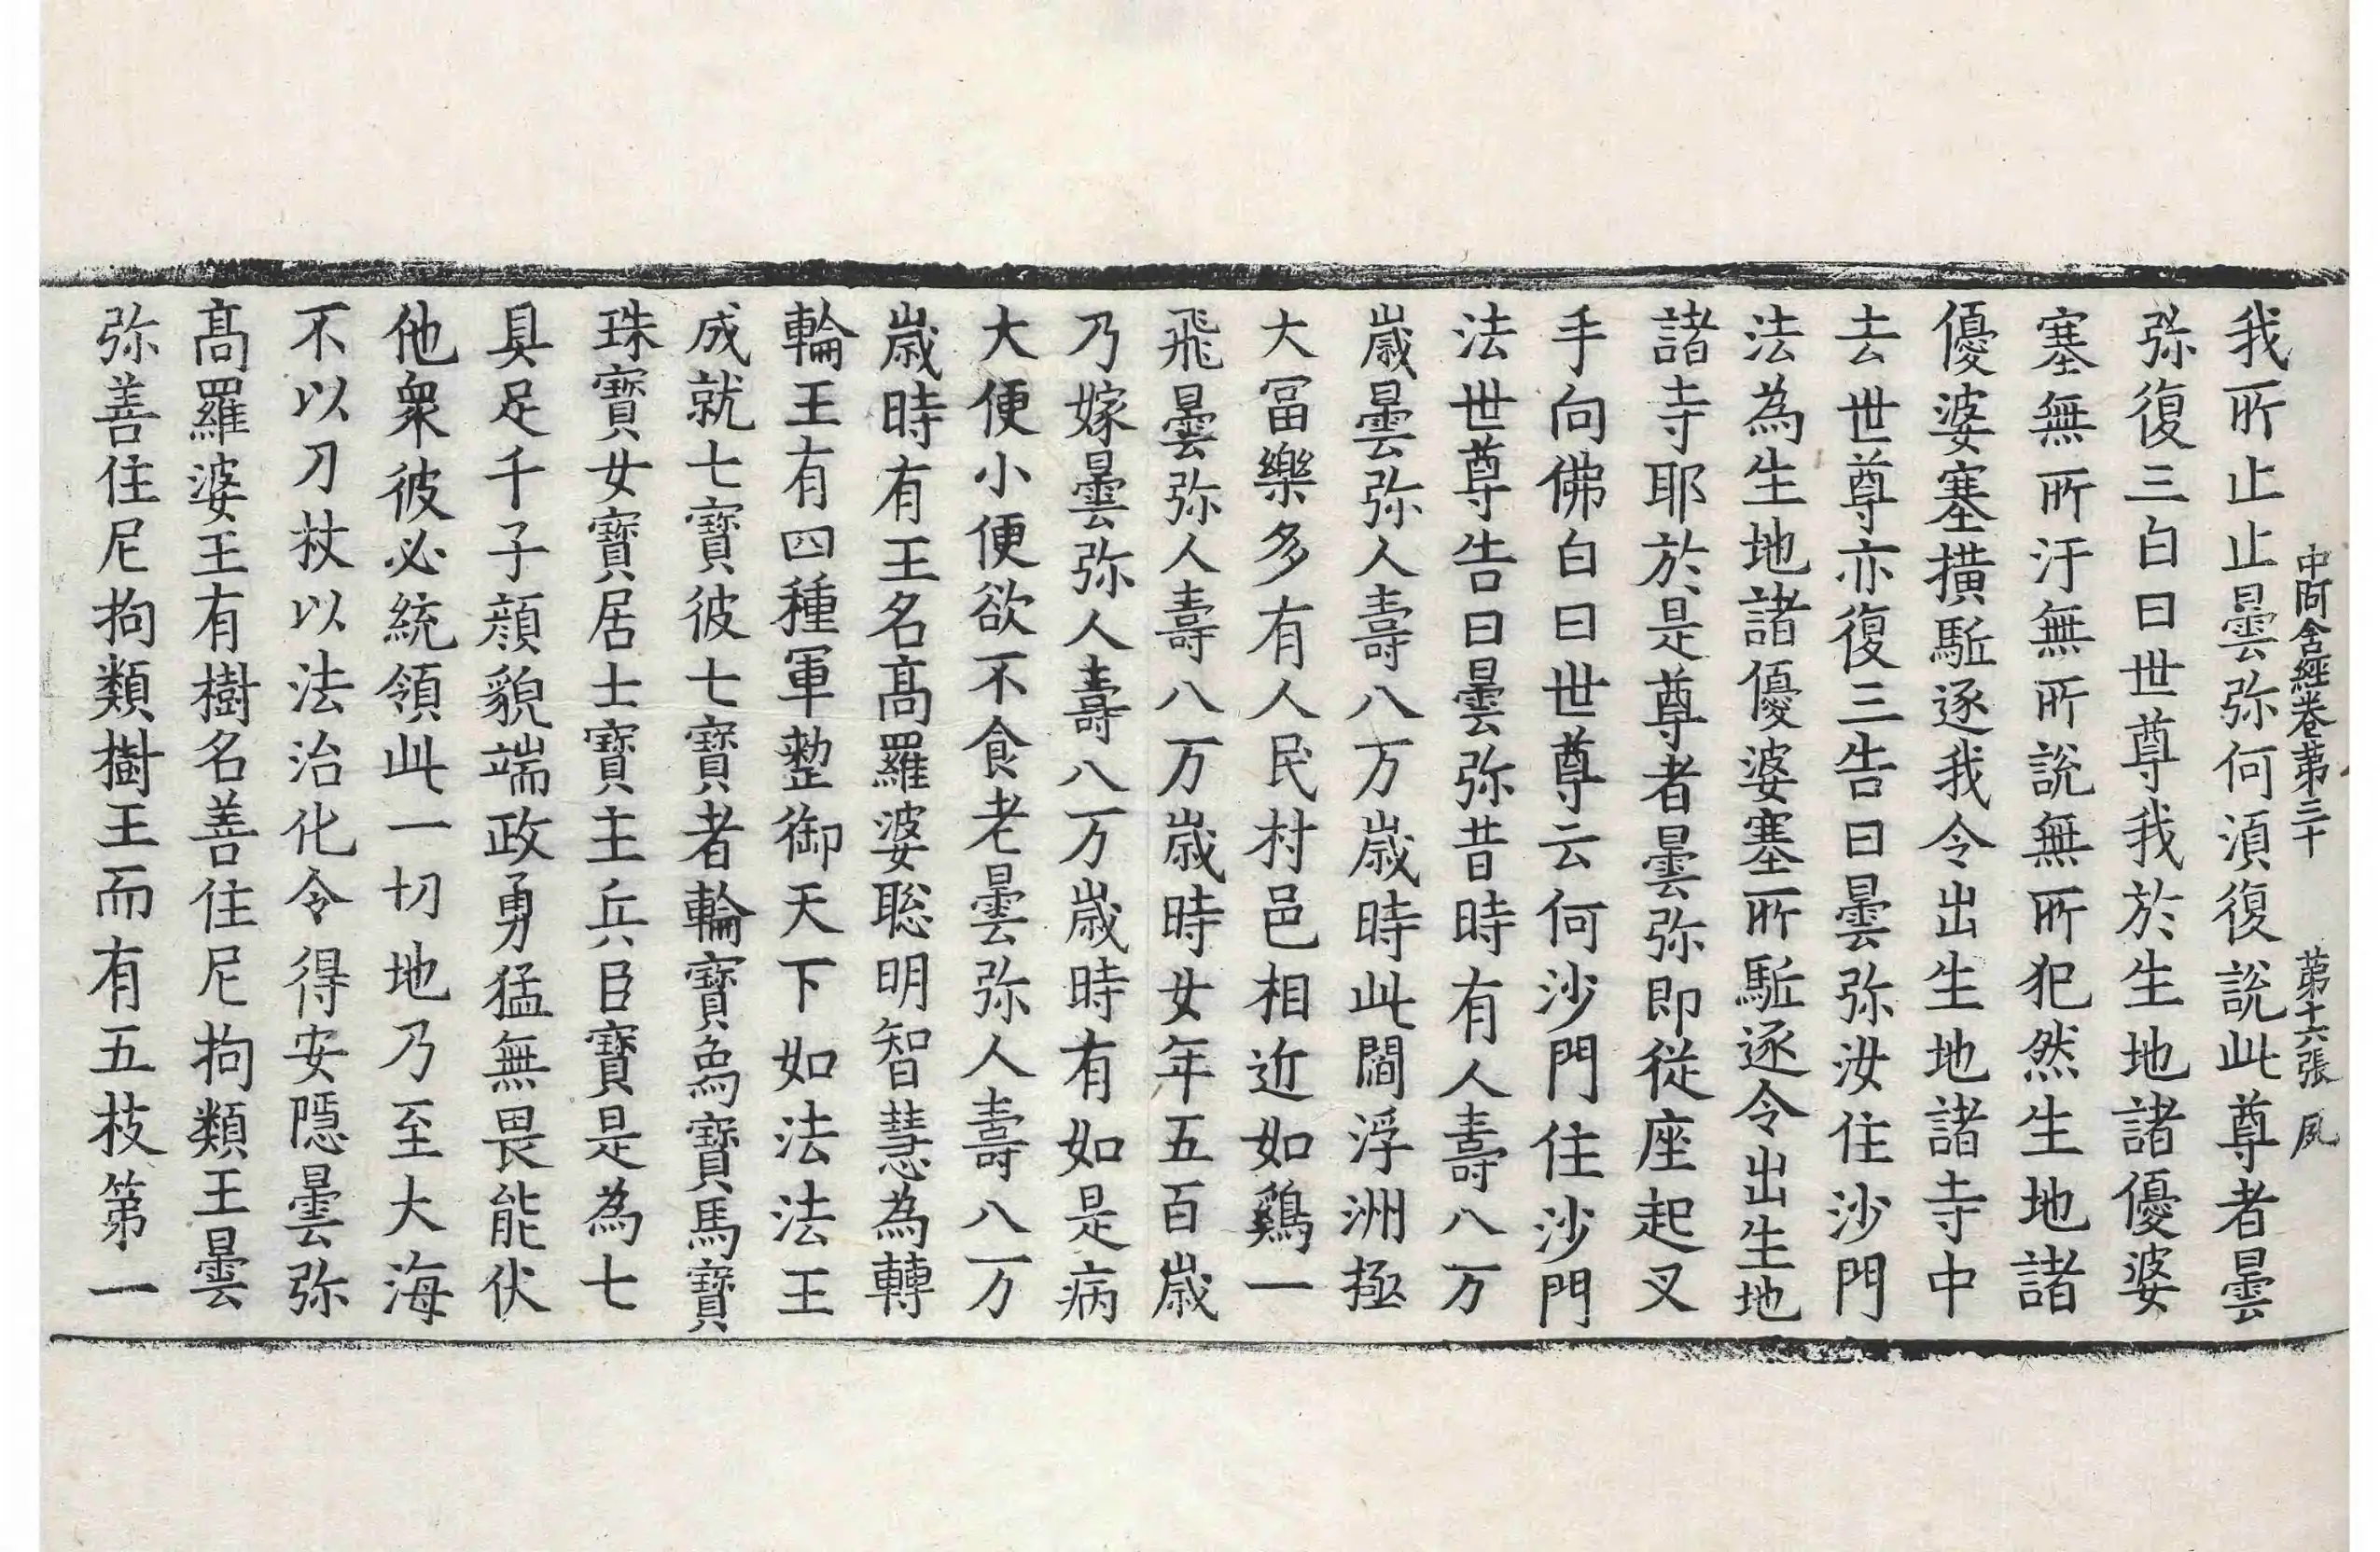 中阿含經卷第三十　第十六張　夙
我所止止曇弥何湏復說此尊者曇
弥復三白曰世尊我於生地諸優婆
塞無所汙無所說無所犯然生地諸
優婆塞撗駈逐我令出生地諸寺中
去世尊亦復三告曰曇弥汝住沙門
法為生地諸優婆塞所駈逐令出生地
諸寺耶於是尊者曇弥即從座起叉
手向佛白曰世尊云何沙門住沙門
法世尊告曰曇弥昔時有人壽八万
歲曇弥人壽八万歲時此閻浮洲極
大冨樂多有人民村邑相近如鷄一
飛曇弥人壽八万歲時女年五百歲
乃嫁曇弥人壽八万歲時有如是病
大便小便欲不食老曇弥人壽八万
歲時有王名髙羅婆聦明智慧為轉
輪王有四種軍整御天下如法法王
成就七寶彼七寶者輪寶象寶馬寶
珠寶女寶居士寶主兵臣寶是為七
具足千子顔貌端政勇猛無畏能伏
他衆彼必統領此一切地乃至大海
不以刀杖以法治化令得安隱曇弥
髙羅婆王有樹名善住尼拘類王曇
弥善住尼拘類樹王而有五枝第一